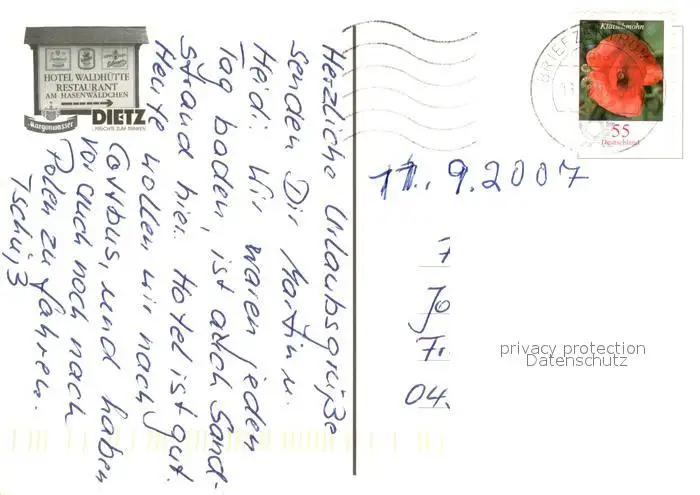 HOTEL WALDHÜTTE
RESTAURANT
AM HASENWÄLDCHEN
Margonwasser
DIETZ
FRÜCHTE ZUM TRINKEN
Herzliche Urlaubsgrüße
senden Dir Martin u.
Heidi. Wir waren jeden
Tag baden, ist auch Sand-
strand hier. Hotel ist gut.
Heute wollen wir nach
Cottbus, und haben
vor auch noch nach
Polen zu fahren.
Tschüß
BRIEFZENTRUM
Klatschmohn
55
Deutschland
11. 9. 2007
Jo
Fr
04.
privacy protection
Datenschutz